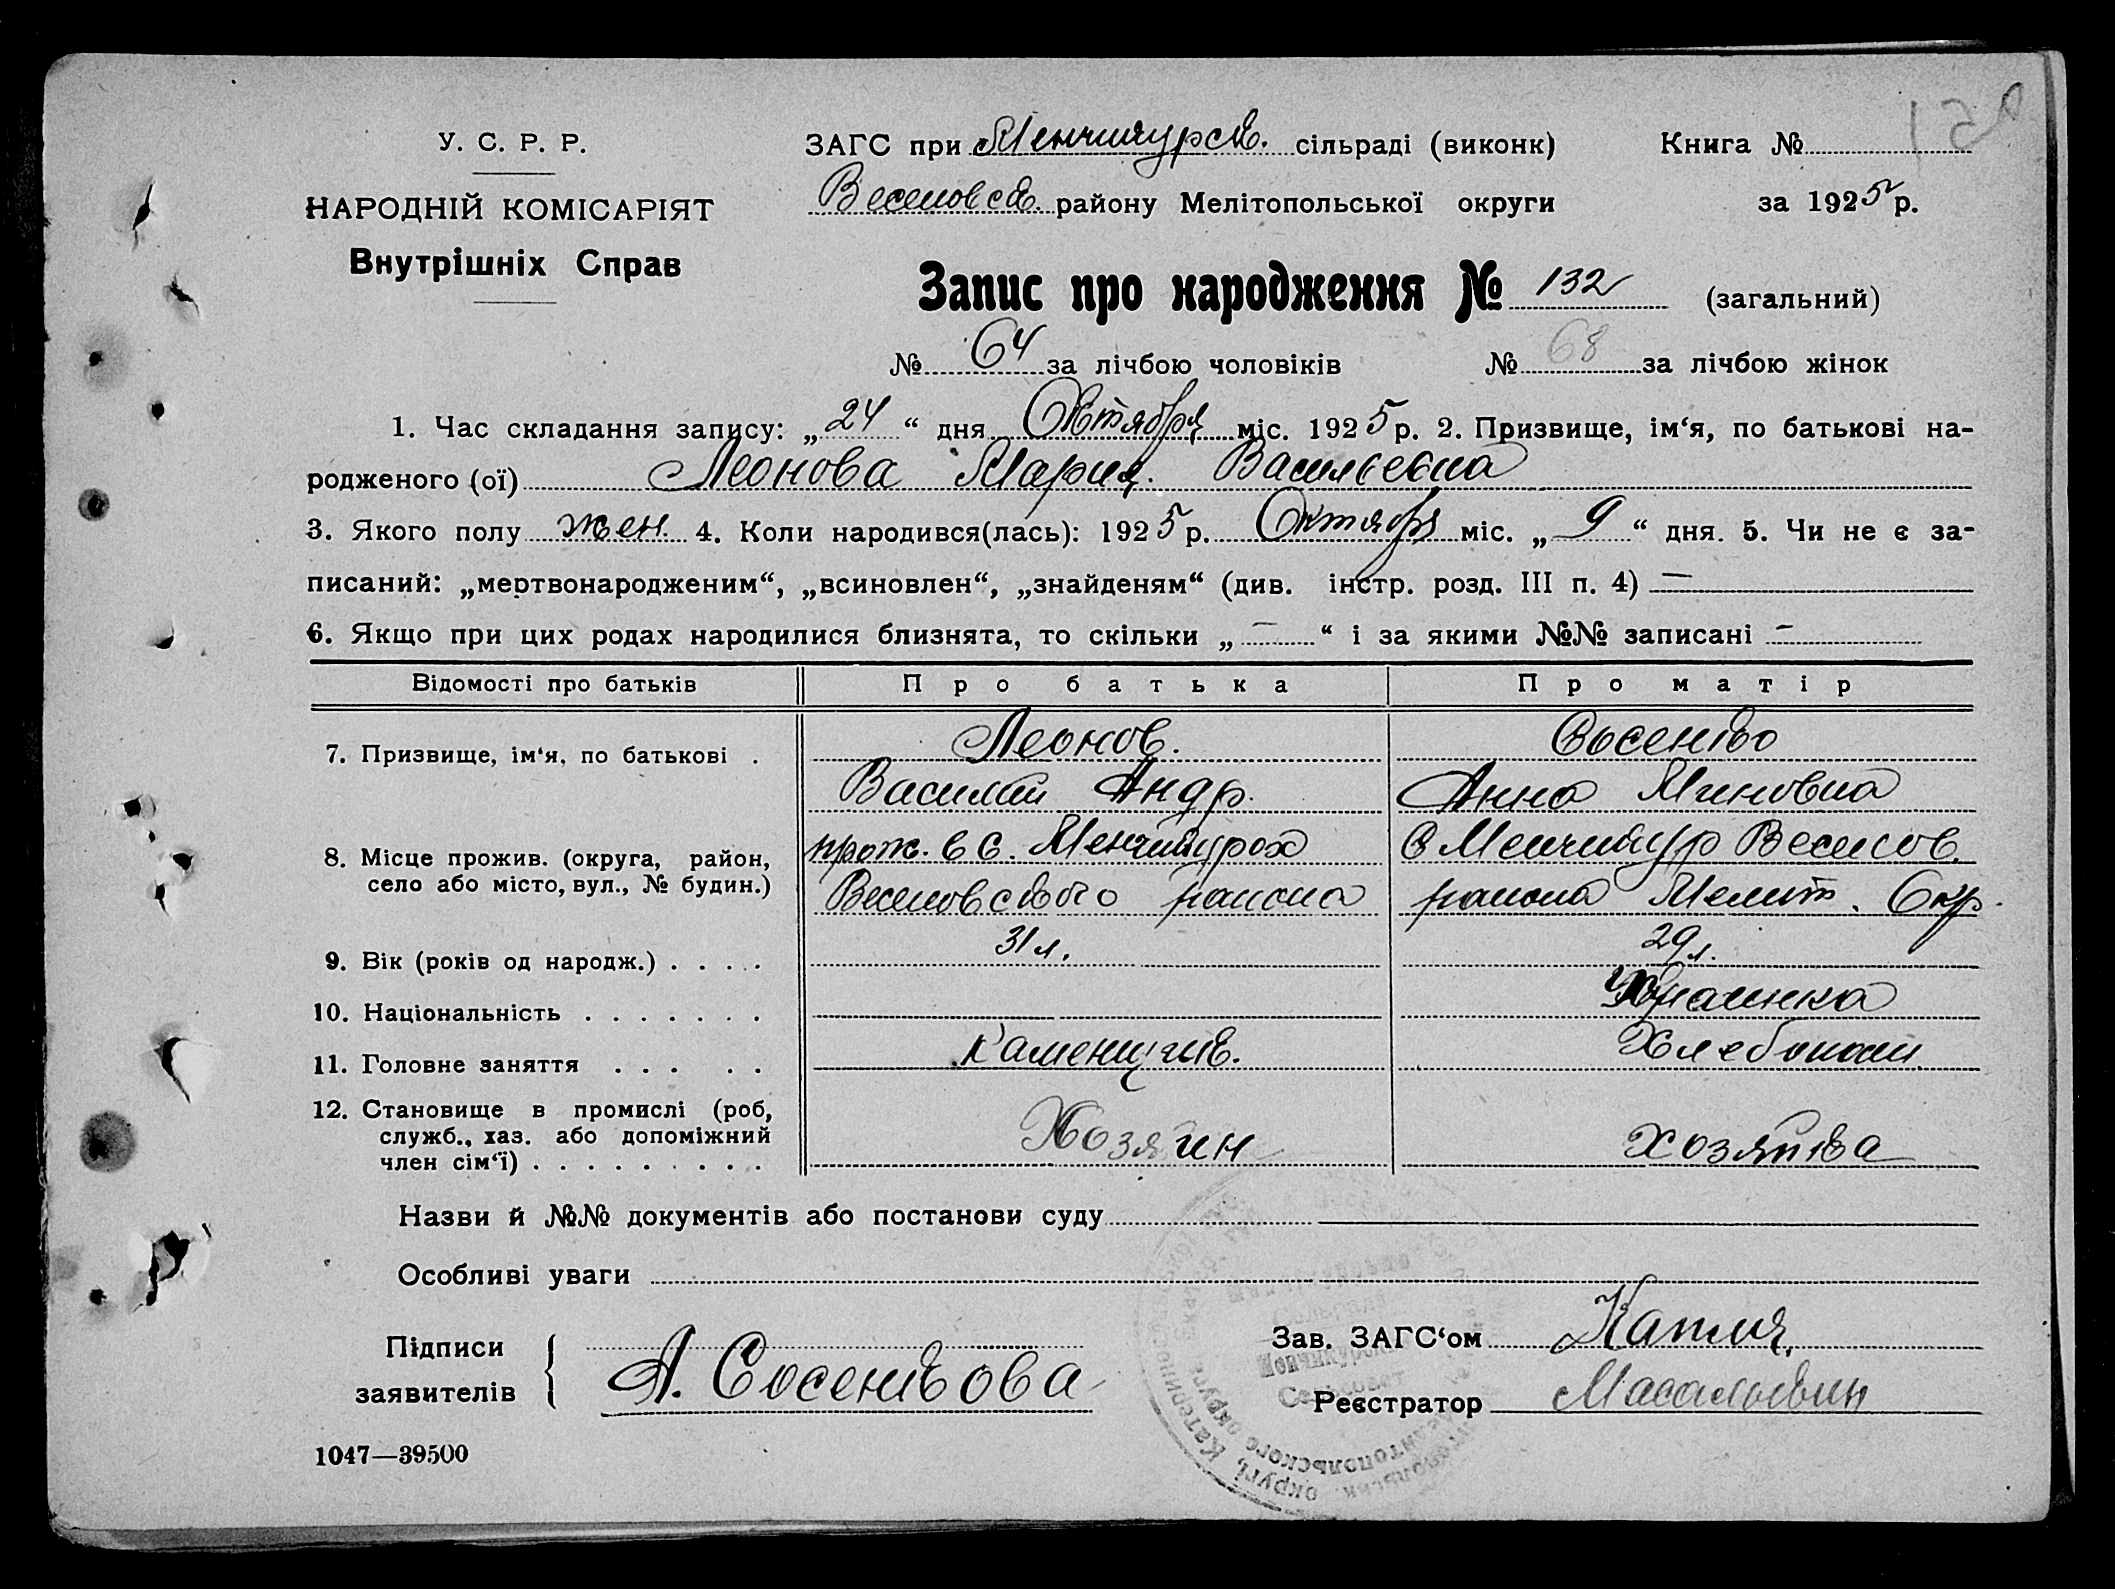 У. С. Р. Р.
НАРОДНІЙ КОМІСАРІЯТ
Внутрішніх Справ
ЗАГС при Менчикурск. сільраді (виконк)
Книга №
Веселовск. району Мелітопольської округи
за 1925 р.
Запис про народження № 132 (загальний)
№ 64 за лічбою чоловіків № 68 за лічбою жінок
1. Час складання запису: „24“ дня Октября міс. 1925 р. 2. Призвище, ім‘я, по батькові на-
родженого (ої) Леонова Мария Васильевна
3. Якого полу жен. 4. Коли народився(лась): 1925 р. Октября міс. „9“ дня. 5. Чи не є за-
писаний: „мертвонародженим“, „всиновлен“, „знайденям“ (див. інстр. розд. III п. 4) —
6. Якщо при цих родах народилися близнята, то скільки „—“ і за якими №№ записані —
Відомості про батьків Про батька Про матір
7. Призвище, ім‘я, по батькові . Леонов. Сосенко
Василий Андр. Анна Миновна
8. Місце прожив. (округа, район, прож. в с. Менчикурах в Менчикур Веселов.
село або місто, вул., № будин.) Веселовского района района Мелит. Окр.
9. Вік (років од народж.) . . . . 31 л. 29 л.
10. Національність . . . . . . . Украинка
11. Головне заняття . . . . . Каменщик. Хлебопаш.
12. Становище в промислі (роб,
служб., хаз. або допоміжний Хозяин хозяйка
член сім‘ї) . . . . . . . . .
Назви й №№ документів або постанови суду
Особливі уваги
Підписи
заявителів
А. Сосенкова
Зав. ЗАГС‘ом Капля
Реєстратор
1047—39500